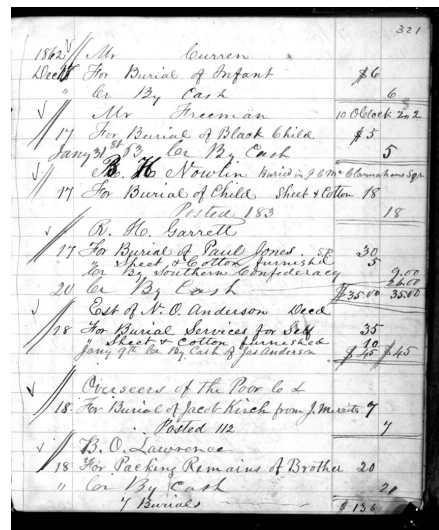 321
1862 Mr Curren
Dec For Burial of Infant $6
" Cr By Cash 6
Mr Freeman 10 O'Clock 202
17 For Burial of Black Child $5
Jany 31st 63 Cr By Cash 5
B. H. Nowlin Buried in J C Mc Sqr
17 For Burial of Child Sheet & Cotton 18
Posted 183 18
R. H. Garrett
17 For Burial of Paul Jones. 30
" Sheet & Cotton furnished 5
Cr By Southern Confederacy 9.00
20 Cr By Cash 26.00
$35.00 35.00
Est of N. O. Anderson Decd
18 For Burial Services for Self 35
" Sheet & Cotton furnished 10
Jany 9th Cr By Cash of Jas Anderson $45 $45
Overseers of the Poor
18 For Burial of Jacob Kirch from J. Merrits 7
Posted 112 7
B. O. Lawrence
18 For Packing Remains of Brother 20
" Cr By Cash 20
7 Burials $136